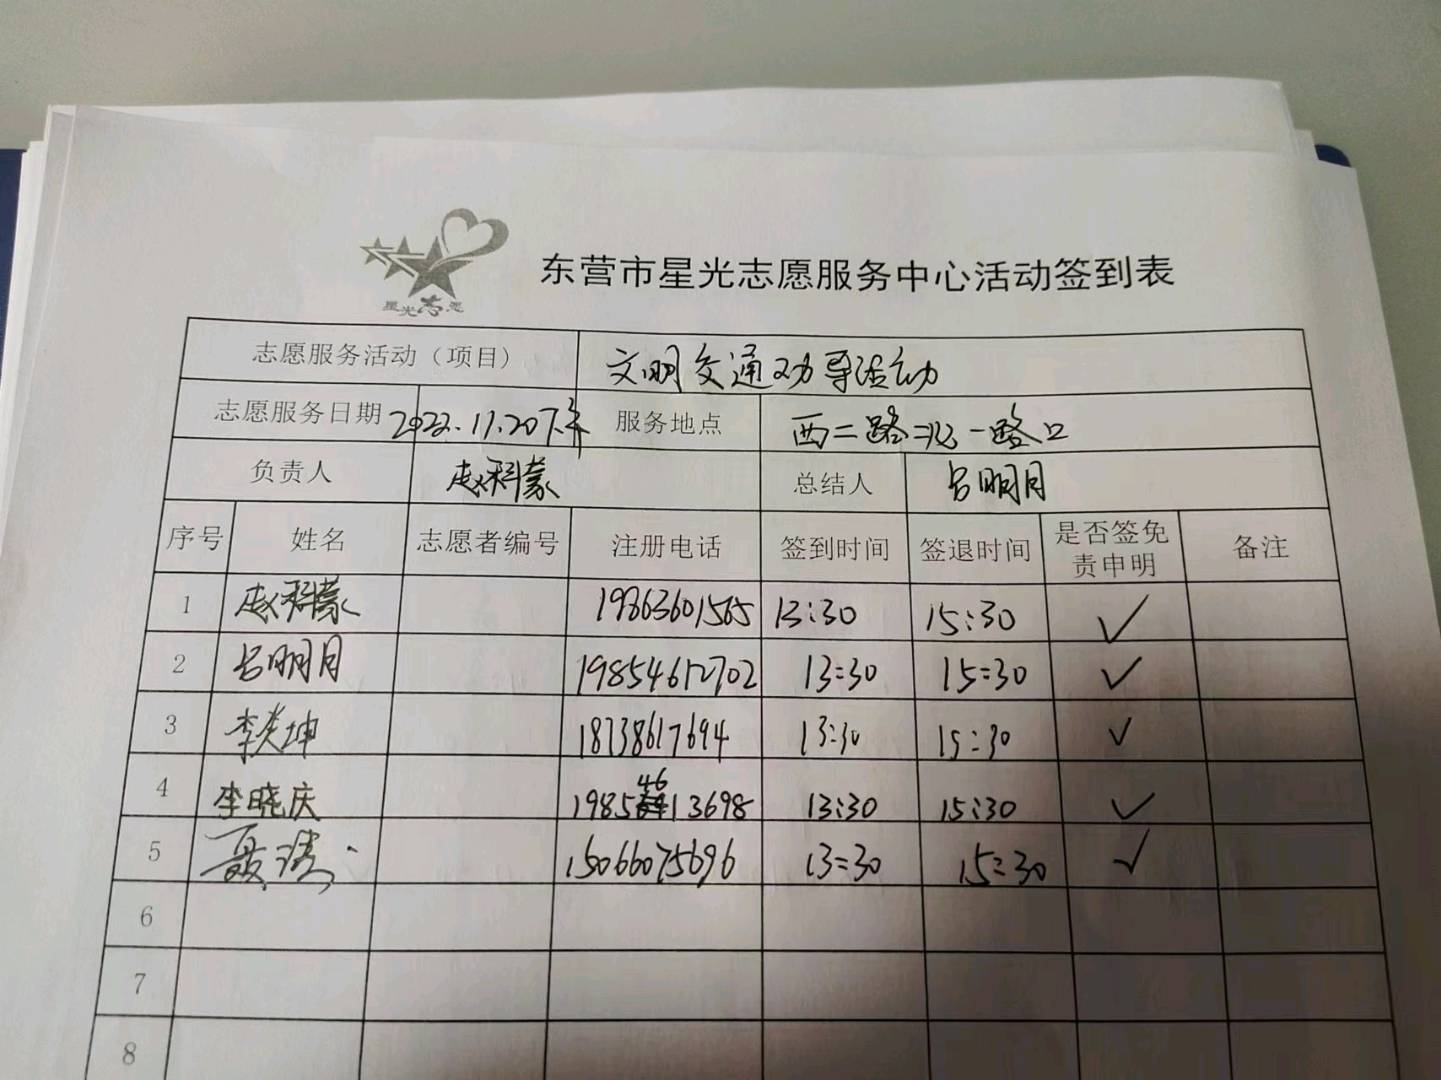 星光志愿
东营市星光志愿服务中心活动签到表
志愿服务活动（项目） 文明交通劝导活动
志愿服务日期 2022.11.20下午 服务地点 西二路北一路口
负责人 赵科蒙 总结人 吕明月
序号 姓名 志愿者编号 注册电话 签到时间 签退时间 是否签免责申明 备注
1 赵科蒙 19863601565 13:30 15:30 ✓
2 吕明月 19854612702 13:30 15:30 ✓
3 李炎坤 18738617694 13:30 15:30 ✓
4 李晓庆 19854613698 13:30 15:30 ✓
5 聂涛 15066075696 13:30 15:30 ✓
6
7
8